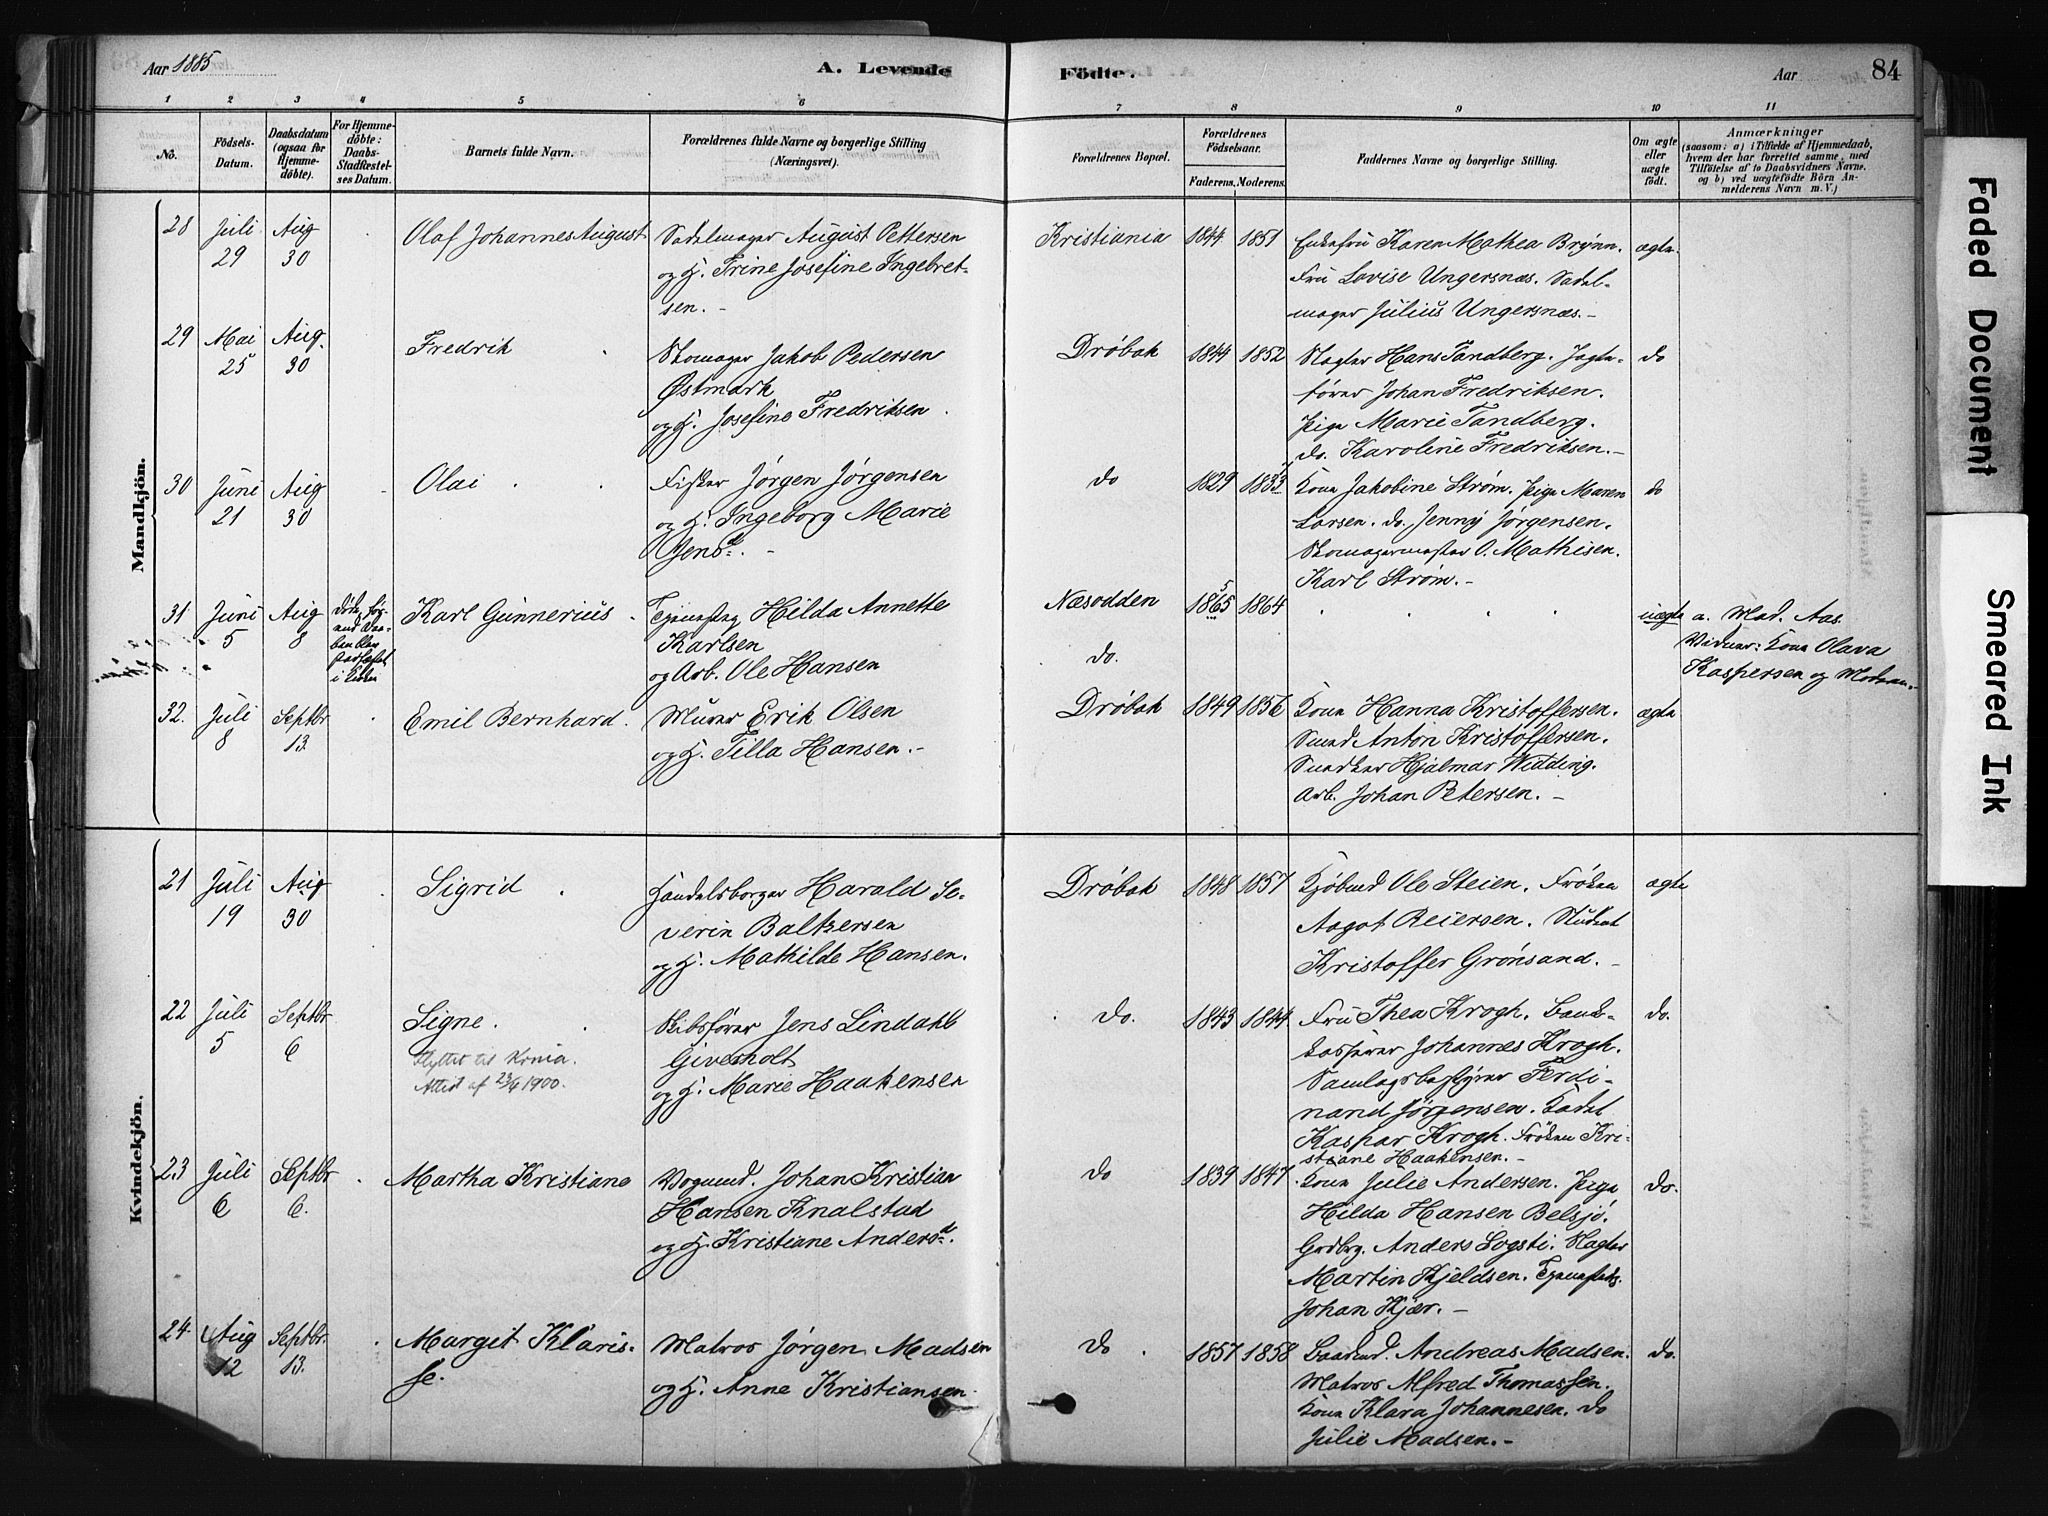 Aar 1885
A. Levende
Födte.
Aar
84
1 2 3 4 5 6 7 8 9 10 11
No.
Födsels-
Datum.
Daabsdatum
(ogsaa for
Hjemme-
döbte).
For Hjemme-
döbte:
Daabs-
Stadfæstel-
ses Datum.
Barnets fulde Navn.
Forældrenes fulde Navne og borgerlige Stilling
(Næringsvei).
Forældrenes Bopæl.
Forældrenes
Födselsaar.
Faderens. Moderens.
Faddernes Navne og borgerlige Stilling.
Om ægte
eller
uægte
födt.
Anmærkninger
(saasom: a) i Tilfælde af Hjemmedaab,
hvem der har forrettet samme, med
Tilföielse af to Daabsvidners Navne.
og b) ved uægtefödte Börn An-
melderens Navn m. V.)
Mandkjön.
28 Juli 29 Aug 30
Olaf Johannes August
Sadelmager August Pettersen
og H. Trine Josefine Ingebret-
sen. -
Kristiania 1844 1851
Enkefru Karen Mathea Brynn.
Fru Lovise Ungersnæs. Sadel-
mager Julius Ungersnæs. -
ægte
29 Mai 25 Aug. 30
Fredrik
Skomager Jakob Pedersen
Østmark
og H. Josefine Fredriksen
Drøbak 1844 1852
Slagter Hans Tandberg. Jagte-
fører Johan Fredriksen.
Pige Marie Tandberg.
do. Karoline Fredriksen. -
do
30 Juni 21 Aug 30
Olai
Fisker Jørgen Jørgensen
og H. Ingeborg Marie
Jensd. -
do 1829 1833
Kone Jakobine Strøm. Pige Maren
Larsen. do. Jenny Jørgensen.
Skomagermester O. Mathisen.
Karl Strøm. -
do
31 Juni 5 Aug 8
Karl Gunnerius
Tjenestepg Hilda Annette
Karlsen
og Arb. Ole Hansen
Næsodden 1865 1864
do.
uægte
a. Mad. Aas.
Vidner: Kone Olava
Kaspersen og Moderen. -
32. Juli 8 Septbr 13.
Emil Bernhard.
Murer Erik Olsen
og H. Tilla Hansen. -
Drøbak 1849 1856
Kone Hanna Kristoffersen.
Smed Anton Kristoffersen.
Snedker Hjalmar Widding.
Arb. Johan Petersen. -
ægte
Kvindekjön.
21 Juli 19 Aug 30
Sigrid
Handelsborger Harald Se-
verin Baltzersen
og H. Mathilde Hansen.
Drøbak 1848 1857
Kjøbmd Ole Steien. Frøken
Aagot Reiersen. Student
Kristoffer Grønsand. -
ægte
22 Juli 5 Septbr 6
Signe.
Flyttet til Krnia.
Attest af 23/4 1900.
Skibsfører Jens Lindahl
Giverholt
og H. Marie Haakensen
do. 1843 1844
Fru Thea Krogh. Bank-
kasserer Johannes Krogh.
Samlagsbestyrer Ferdi-
nand Jørgensen. Kadet
Kaspar Krogh. Frøken Kri-
stiane Haakensen. -
do.
23 Juli 6 Septbr 6.
Martha Kristiane
Vognmd. Johan Kristian
Hansen Knalstad
og H. Kristiane Andersd.
do 1839 1847
Kone Julie Andersen. Pige
Hilda Hansen Belsjø.
Grdbrg. Anders Sogsti. Slagter
Martin Kjeldsen. Tjenestedr.
Johan Kjær. -
do.
24 Aug 12 Septbr. 13.
Margit Klaris-
se.
Matros Jørgen Madsen
og H. Anne Kristiansen
do 1857 1858
Baadmd. Andreas Madsen.
Matros Alfred Thomassen.
Kone Klara Johannesen. do
Julie Madsen. -
do.
Faded Document
Smeared Ink